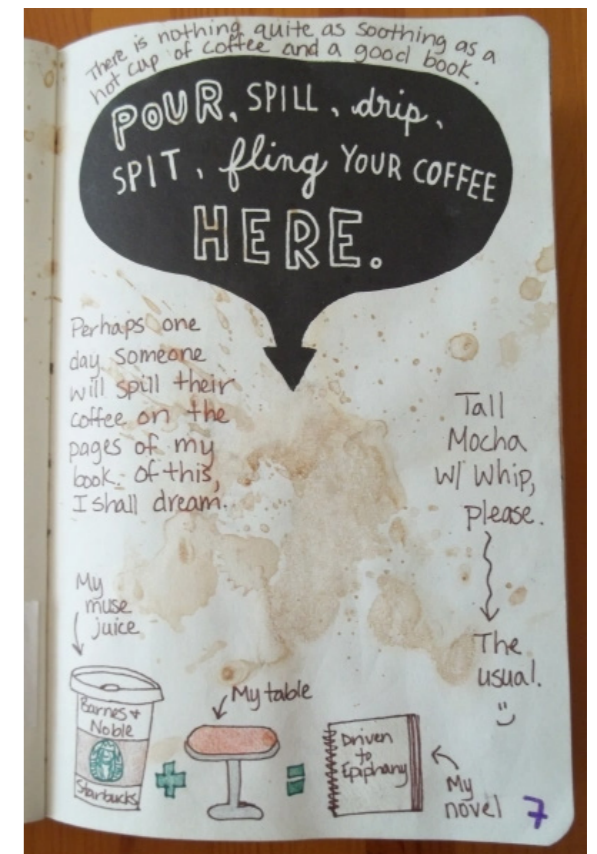 There is nothing quite as soothing as a
hot cup of coffee and a good book.
POUR, SPILL, drip,
SPIT, fling YOUR COFFEE
HERE.
Perhaps one
day someone
will spill their
coffee on the
pages of my
book. Of this,
I shall dream.
Tall
Mocha
W/ Whip,
please.
The
usual.
:)
My
muse
juice
Barnes +
Noble
Starbucks
+
My table
=
Driven
to
Epiphany
My
novel
7